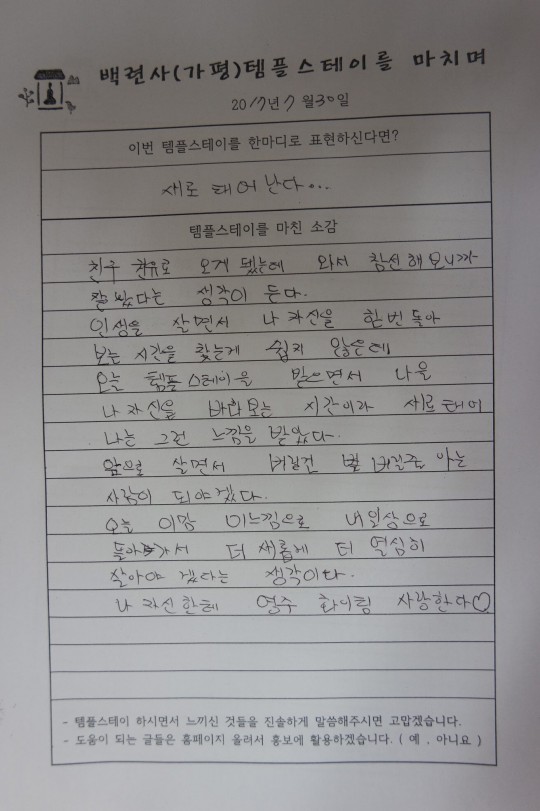 백련사(가평)템플스테이를 마치며
2017년 7월30일
이번 템플스테이를 한마디로 표현하신다면?
새로 태어난다...
템플스테이를 마친 소감
친구 권유로 오게 됐는데 와서 참선해 보니까
잘 왔다는 생각이 든다.
인생을 살면서 나 자신을 한번 돌아
보는 시간을 찾는게 쉽지 않은데
오늘 템플스테이을 받으면서 나을
나 자신을 바라보는 시간이라 새로 태어
나는 그런 느낌을 받았다.
앞으로 살면서 버릴건 버릴줄 아는
사람이 되야겠다.
오늘 이맘 이느낌으로 내일상으로
돌아가서 더 새롭게 더 열심히
살아야 겠다는 생각이다.
나 자신한테 영주 화이팅 사랑한다♡
- 템플스테이 하시면서 느끼신 것들을 진솔하게 말씀해주시면 고맙겠습니다.
- 도움이 되는 글들은 홈페이지 올려서 홍보에 활용하겠습니다. ( 예 , 아니요 )